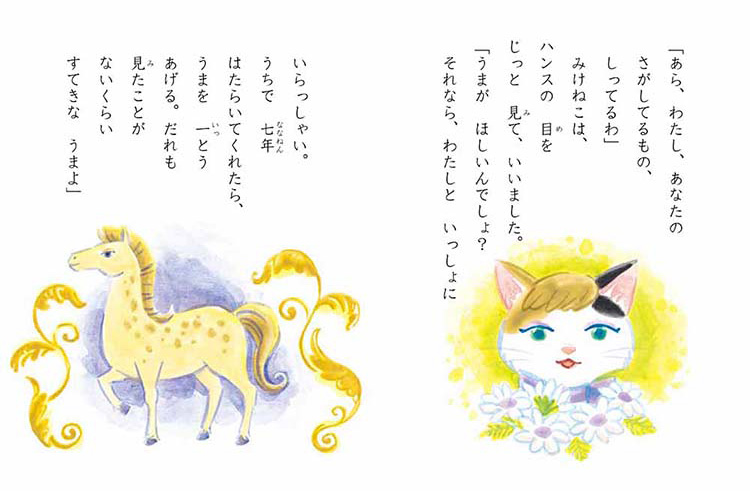 「あら、わたし、あなたの
さがしてるもの、
しってるわ」
みけねこは、
ハンスの 目を
じっと 見て、いいました。
「うまが ほしいんでしょ?
それなら、わたしと いっしょに
いらっしゃい。
うちで 七年
はたらいてくれたら、
うまを 一とう
あげる。だれも
見たことが
ないくらい
すてきな うまよ」